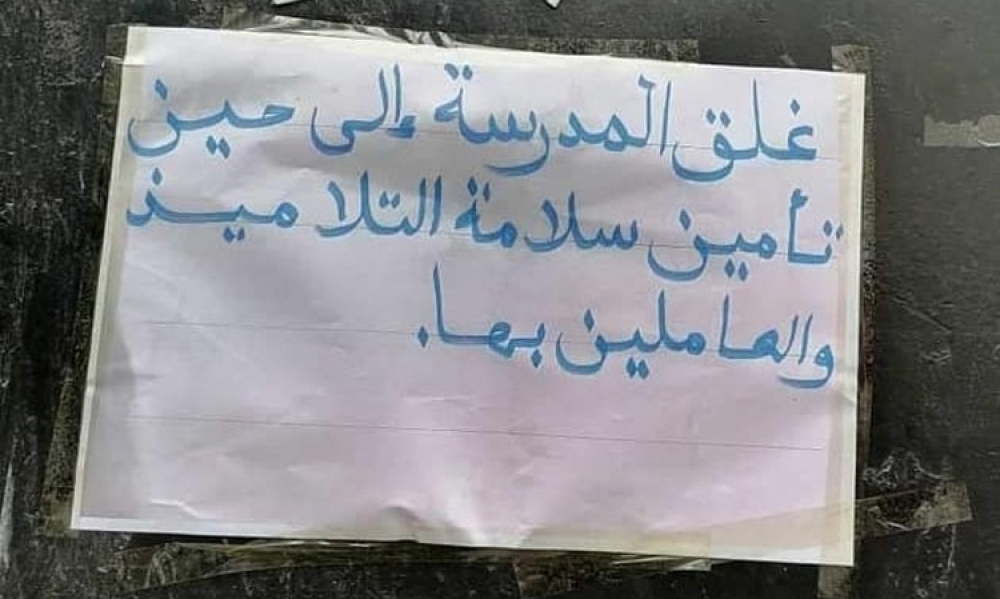 غلق المدرسة إلى حين
تأمين سلامة التلاميذ
والعاملين بها.